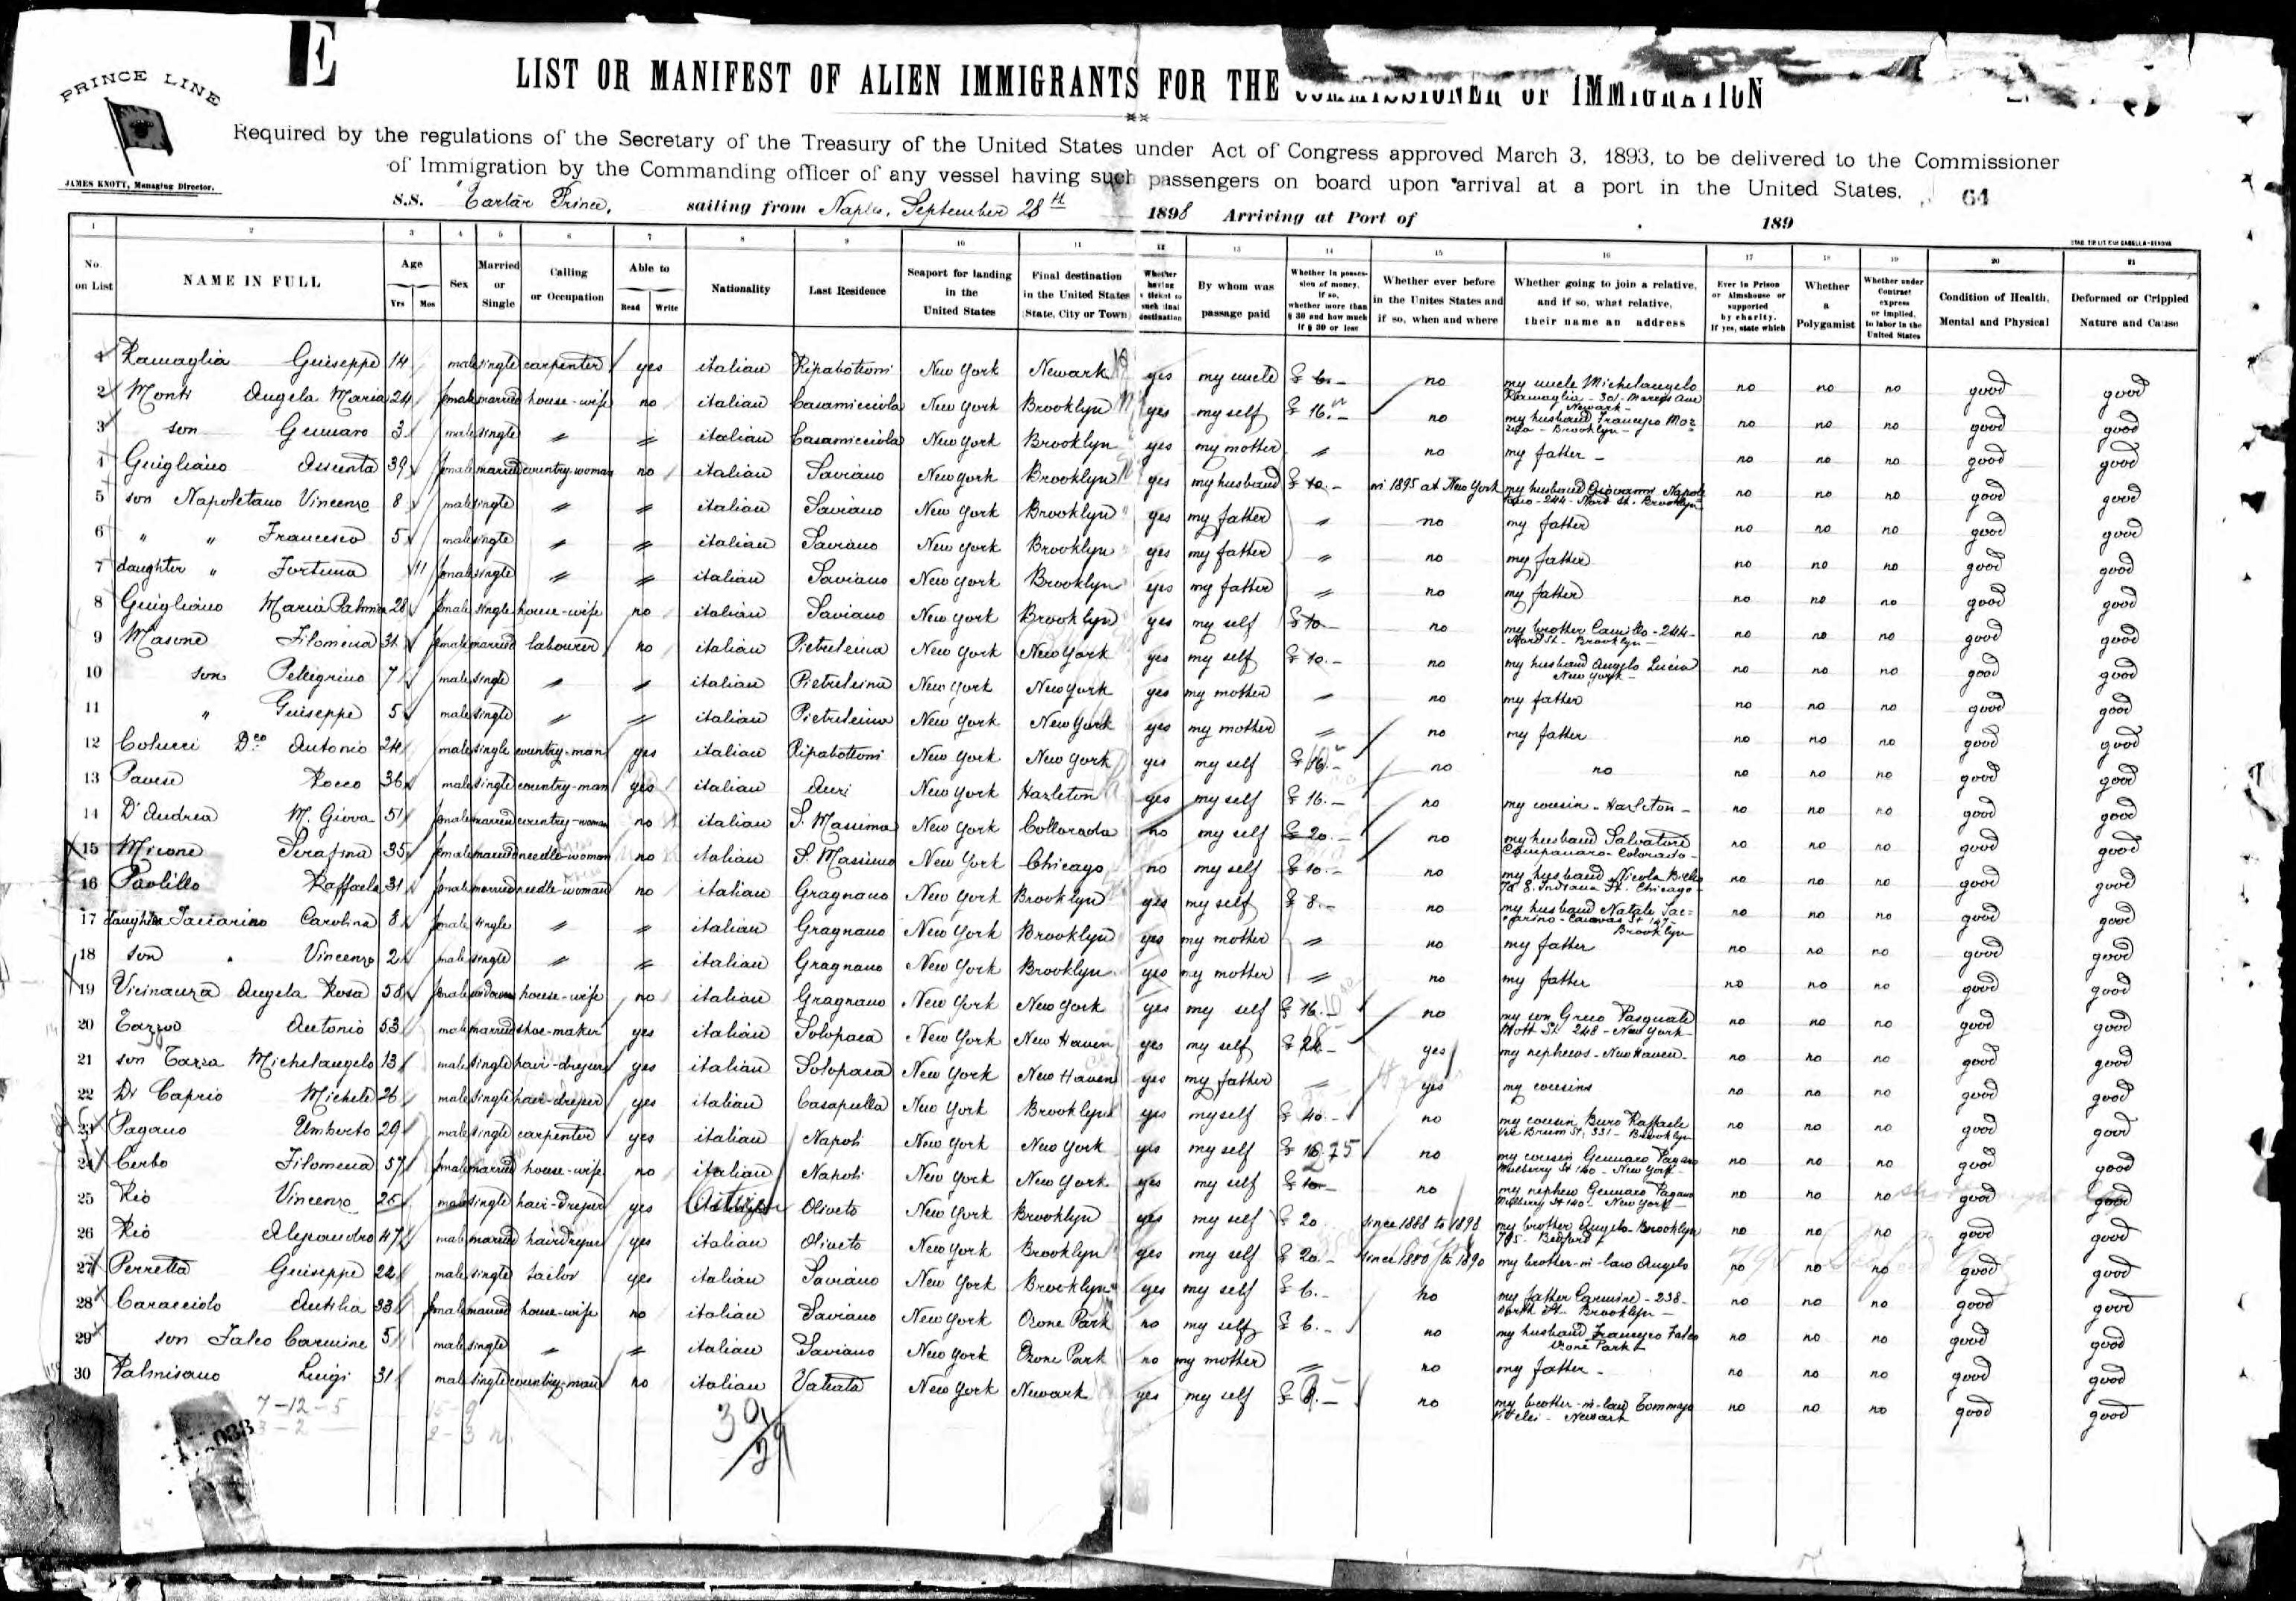 E
PRINCE LINE
JAMES KNOTT, Managing Director.
LIST OR MANIFEST OF ALIEN IMMIGRANTS FOR THE COMMISSIONER OF IMMIGRATION
Required by the regulations of the Secretary of the Treasury of the United States under Act of Congress approved March 3, 1893, to be delivered to the Commissioner
of Immigration by the Commanding officer of any vessel having such passengers on board upon arrival at a port in the United States.
64
S.S. Tartar Prince, sailing from Naples, September 28th 1898 Arriving at Port of 189
1 2 3 4 5 6 7 8 9 10 11 12 13 14 15 16 17 18 19 20 21
No. on List NAME IN FULL Age Yrs Mos Sex Married or Single Calling or Occupation Able to Read Write Nationality Last Residence Seaport for landing in the United States Final destination in the United States (State, City or Town) Whether having a ticket to such final destination By whom was passage paid Whether in possession of money, if so, whether more than $ 30 and how much if $ 30 or less Whether ever before in the Unites States and if so, when and where Whether going to join a relative, and if so, what relative, their name an address Ever in Prison or Almshouse or supported by charity. If yes, state which Whether a Polygamist Whether under Contract express or implied, to labor in the United States Condition of Health, Mental and Physical Deformed or Crippled Nature and Cause
1 Ramaglia Guiseppe 14 male single carpenter yes italian Ripabottoni New York Newark yes my uncle $ 6.- no my uncle Michelangelo Ramaglia - 301 - Newark - no no no good good
2 Monti Angela Maria 24 female married house-wife no italian Casamicciola New York Brooklyn yes my self $ 16.- no my husband Francesco - Brooklyn - no no no good good
3 son Gennaro 3 male single " " italian Casamicciola New York Brooklyn yes my mother " no my father - no no no good good
4 Guigliano Assunta 39 female married country-woman no italian Saviano New York Brooklyn yes my husband $ 10.- in 1895 at New York my husband Giovanni - 244 - St. Brooklyn no no no good good
5 son Napoletano Vincenzo 8 male single " " italian Saviano New York Brooklyn yes my father " no my father no no no good good
6 " " Francesco 5 male single " " italian Saviano New York Brooklyn yes my father " no my father no no no good good
7 daughter " Fortuna 11 female single " " italian Saviano New York Brooklyn yes my father " no my father no no no good good
8 Guigliano Maria Palma 28 female single house-wife no italian Saviano New York Brooklyn yes my self $ 10 no my brother Camillo - 244 - St - Brooklyn - no no no good good
9 Masone Filomena 31 female married labourer no italian Pietrelcina New York New York yes my self $ 10.- no my husband Angelo Lucia New York - no no no good good
10 son Pellegrino 7 male single " " italian Pietrelcina New York New York yes my mother " no my father no no no good good
11 " Guiseppe 5 male single " " italian Pietrelcina New York New York yes my mother " no my father no no no good good
12 Colucci Dco Antonio 24 male single country-man yes italian Ripabottoni New York New York yes my self $ 16.- no no no no no good good
13 Pavese Rocco 36 male single country-man yes italian New York Hazleton yes my self $ 16.- no my cousin - Hazleton - no no no good good
14 D'Andrea M. Giova 51 female married country-woman no italian S. Massimo New York Collorado no my self $ 20.- no my husband Salvatore Campanaro - Colorado - no no no good good
15 Micone Serafina 35 female married needle-woman no italian S. Massimo New York Chicago no my self $ 10.- no my husband Nicola 78 S. Indiana St. Chicago - no no no good good
16 Paolillo Raffaela 31 female married needle-woman no italian Gragnano New York Brooklyn yes my self $ 8.- no my husband Natale - St 147 - Brooklyn no no no good good
17 daughter Iaccarino Carolina 8 female single " " italian Gragnano New York Brooklyn yes my mother " no my father no no no good good
18 son " Vincenzo 2 male single " " italian Gragnano New York Brooklyn yes my mother " no my father no no no good good
19 Vicinanza Angela Rosa 58 female widower house-wife no italian Gragnano New York New York yes my self $ 16.- no my son Greco Pasquale Mott St 248 - New York - no no no good good
20 Antonio 53 male married shoe-maker yes italian Solopaca New York New Haven yes my self $ 24.- yes my nephews - New Haven - no no no good good
21 son Tazza Michelangelo 13 male single hair-dresser yes italian Solopaca New York New Haven yes my father " yes my cousins no no no good good
22 Di Caprio Michele 26 male single hair-dresser yes italian Casapulla New York Brooklyn yes myself $ 40.- no my cousin Raffaele St, 331 - Brooklyn no no no good good
23 Pagano Umberto 29 male single carpenter yes italian Napoli New York New York yes my self $ 10 no my cousin Gennaro Pagano Mulberry St 140 - New York - no no no good good
24 Cerbo Filomena 57 female married house-wife no italian Napoli New York New York yes my self $ 10 no my nephew Gennaro Pagano Mulberry St 140 - New York - no no no good good
25 Rio Vincenzo 25 male single hair-dresser yes Oliveto New York Brooklyn yes my self $ 20 since 1888 to 1898 my brother Angelo - Brooklyn 795 - Bedford no no no good good
26 Rio Alessandro 47 male married hairdresser yes italian Oliveto New York Brooklyn yes my self $ 20 - since 1880 to 1890 my brother-in-law Angelo no no no good good
27 Perretta Guiseppe 22 male single tailor yes italian Saviano New York Brooklyn yes my self $ 6.- no my father Carmine - 238 - North St. Brooklyn - no no no good good
28 Caracciolo Antilia 33 female married house-wife no italian Saviano New York Ozone Park no my self $ 6.- no my husband Francesco Falco Ozone Park no no no good good
29 son Falco Carmine 5 male single " " italian Saviano New York Ozone Park no my mother " no my father - no no no good good
30 Palmisano Luigi 31 male single country-man no italian Valiata New York Newark yes my self $ 8.- no my brother-in-law Tommaso - Newark no no no good good
7-12-5
3-2
30/29